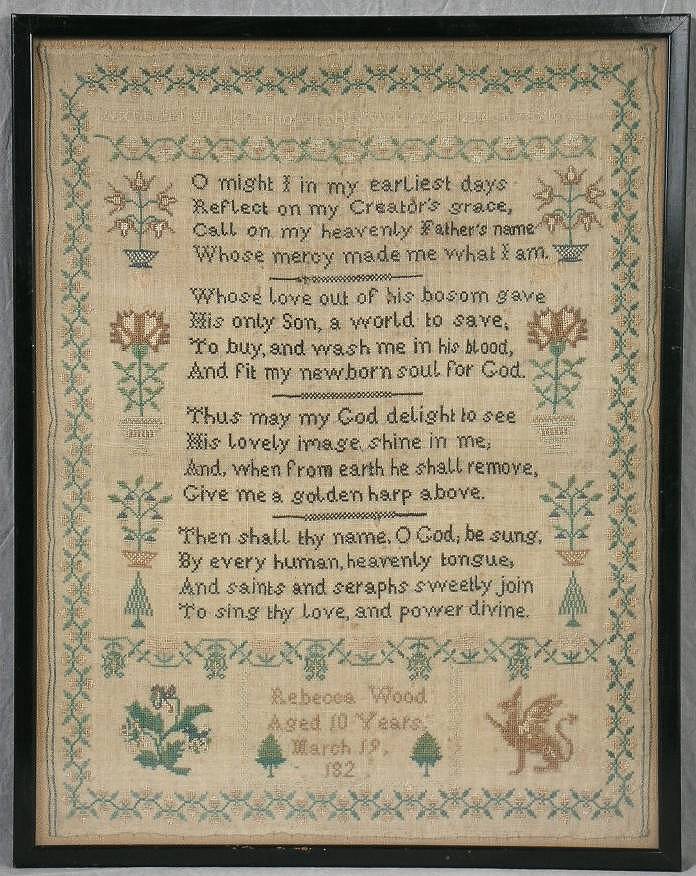 O might I in my earliest days
Reflect on my Creator's grace,
Call on my heavenly Father's name
Whose mercy made me what I am.
Whose love out of his bosom gave
His only Son, a world to save,
To buy, and wash me in his blood,
And fit my newborn soul for God.
Thus may my God delight to see
His lovely image shine in me,
And, when from earth he shall remove,
Give me a golden harp above.
Then shall thy name, O God, be sung,
By every human, heavenly tongue,
And saints and seraphs sweetly join
To sing thy love, and power divine.
Rebecca Wood
Aged 10 Years,
March 19,
182